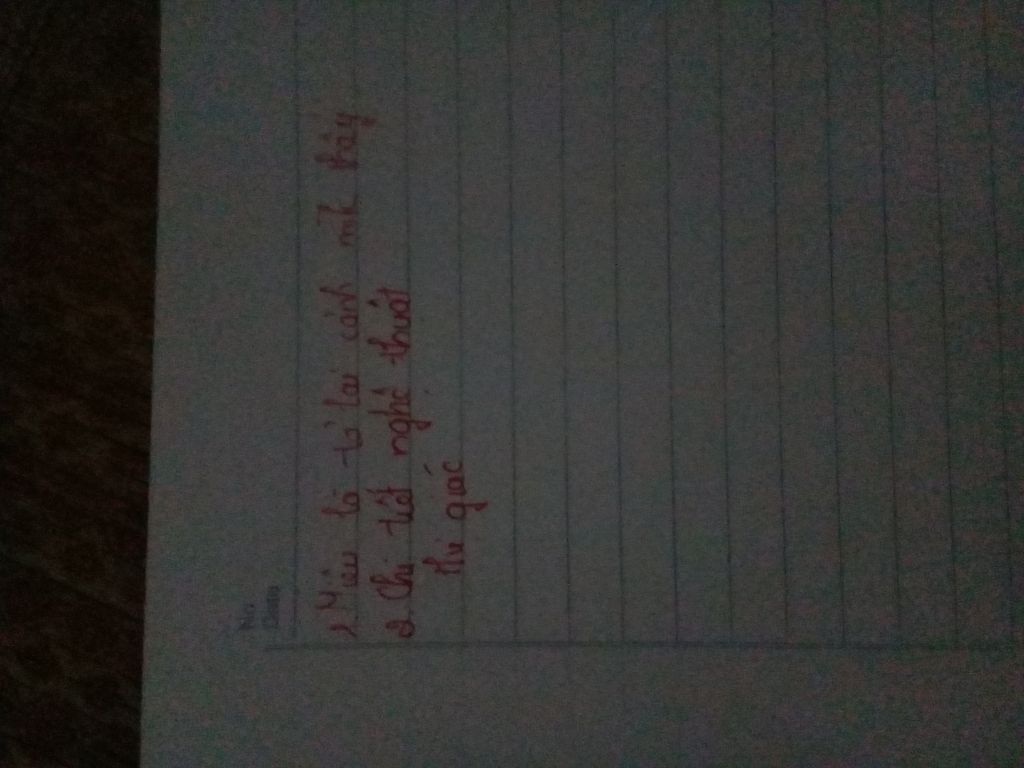 No
Date
1 Miêu tả tả lại cảnh mk thấy
2 Chi tiết nghệ thuật
thị giác